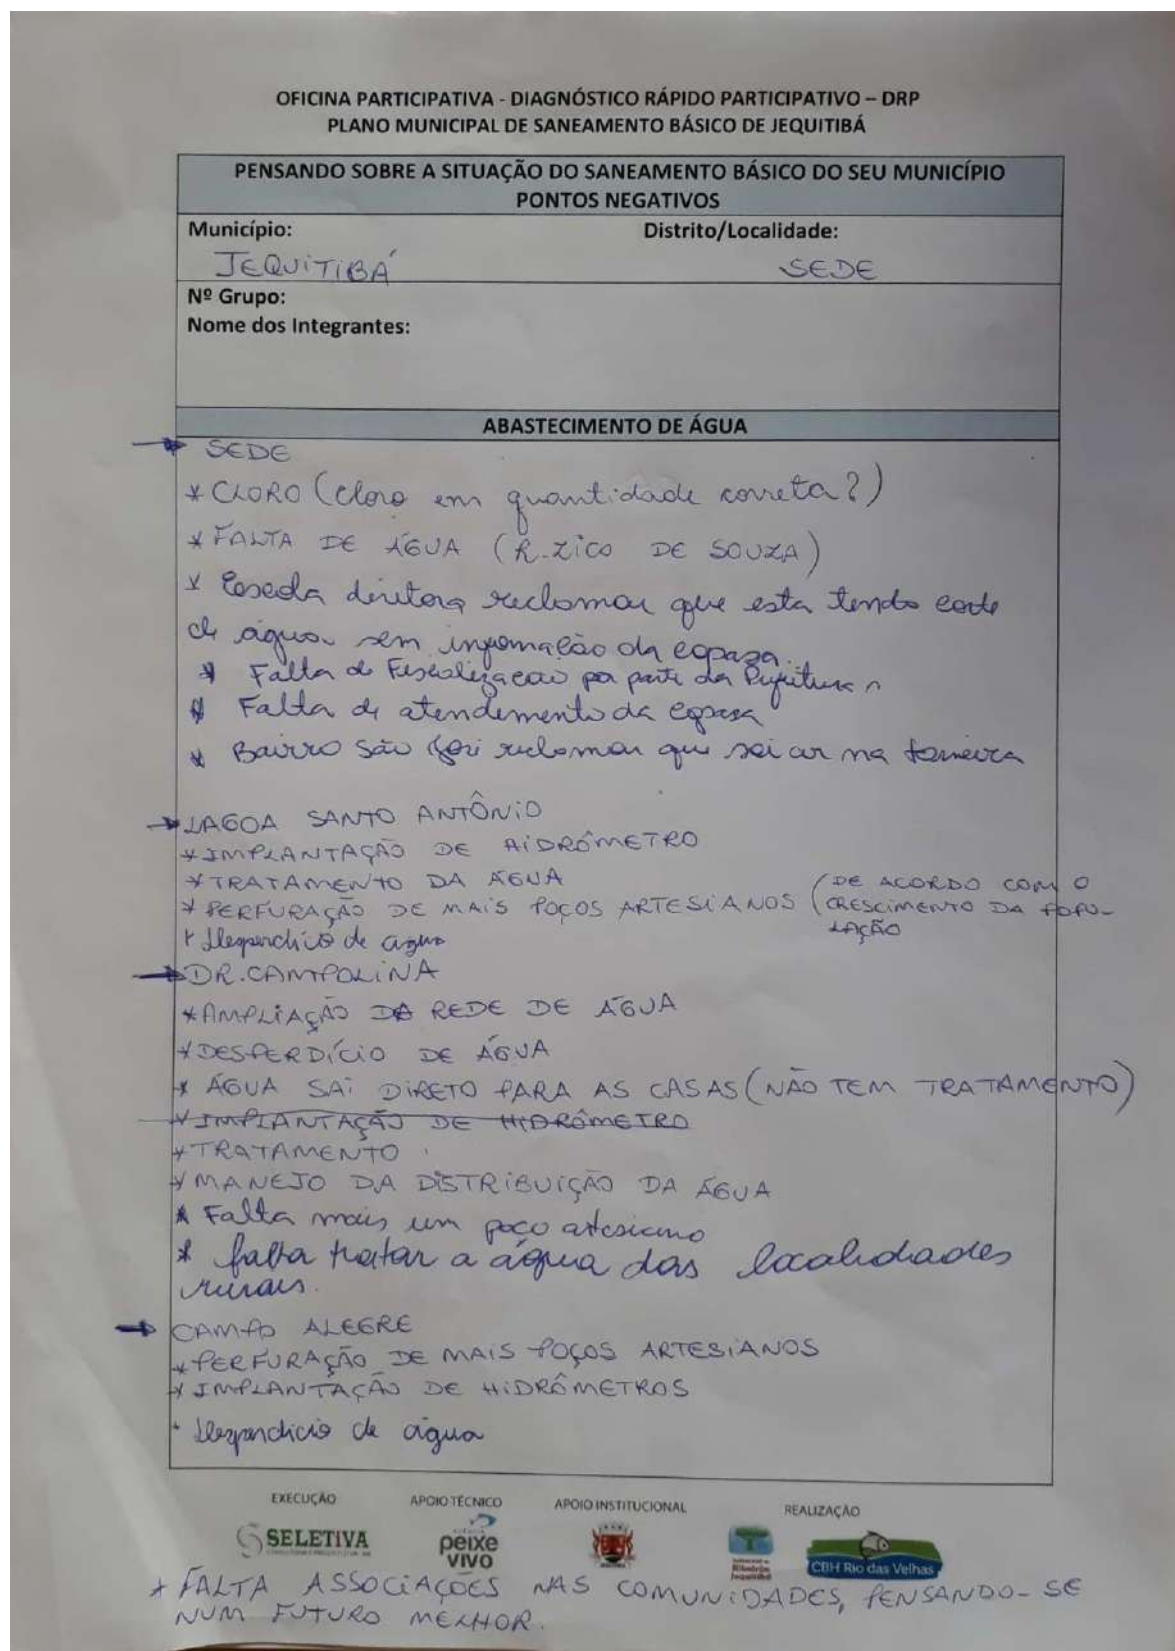 OFICINA PARTICIPATIVA - DIAGNÓSTICO RÁPIDO PARTICIPATIVO – DRP
PLANO MUNICIPAL DE SANEAMENTO BÁSICO DE JEQUITIBÁ
PENSANDO SOBRE A SITUAÇÃO DO SANEAMENTO BÁSICO DO SEU MUNICÍPIO
PONTOS NEGATIVOS
Município: Distrito/Localidade:
JEQUITIBÁ SEDE
Nº Grupo:
Nome dos Integrantes:
ABASTECIMENTO DE ÁGUA
→ SEDE
* CLORO (cloro em quantidade correta?)
* FALTA DE ÁGUA (R. ZICO DE SOUZA)
* Escola diretora reclamou que esta tendo corte
de água sem informação da copasa.
* Falta de Fiscalização por parte da Prefeitura
* Falta de atendimento da copasa
* Bairro São reclamou que sai ar na torneira
→ LAGOA SANTO ANTÔNIO
* IMPLANTAÇÃO DE HIDRÔMETRO
* TRATAMENTO DA ÁGUA
* PERFURAÇÃO DE MAIS POÇOS ARTESIANOS (DE ACORDO COM O
CRESCIMENTO DA POPU-
LAÇÃO
* Desperdício de água
→ DR. CAMPOLINA
* AMPLIAÇÃO DA REDE DE ÁGUA
* DESPERDÍCIO DE ÁGUA
* ÁGUA SAI DIRETO PARA AS CASAS (NÃO TEM TRATAMENTO)
* IMPLANTAÇÃO DE HIDRÔMETRO
* TRATAMENTO
* MANEJO DA DISTRIBUIÇÃO DA ÁGUA
* Falta mais um poço artesiano
* falta tratar a água das localidades
rurais.
→ CAMPO ALEGRE
* PERFURAÇÃO DE MAIS POÇOS ARTESIANOS
* IMPLANTAÇÃO DE HIDRÔMETROS
* Desperdicio de água
EXECUÇÃO APOIO TÉCNICO APOIO INSTITUCIONAL REALIZAÇÃO
SELETIVA
peixe
vivo
Ribeirão
Jequitibá
CBH Rio das Velhas
* FALTA ASSOCIAÇÕES NAS COMUNIDADES, PENSANDO-SE
NUM FUTURO MELHOR.